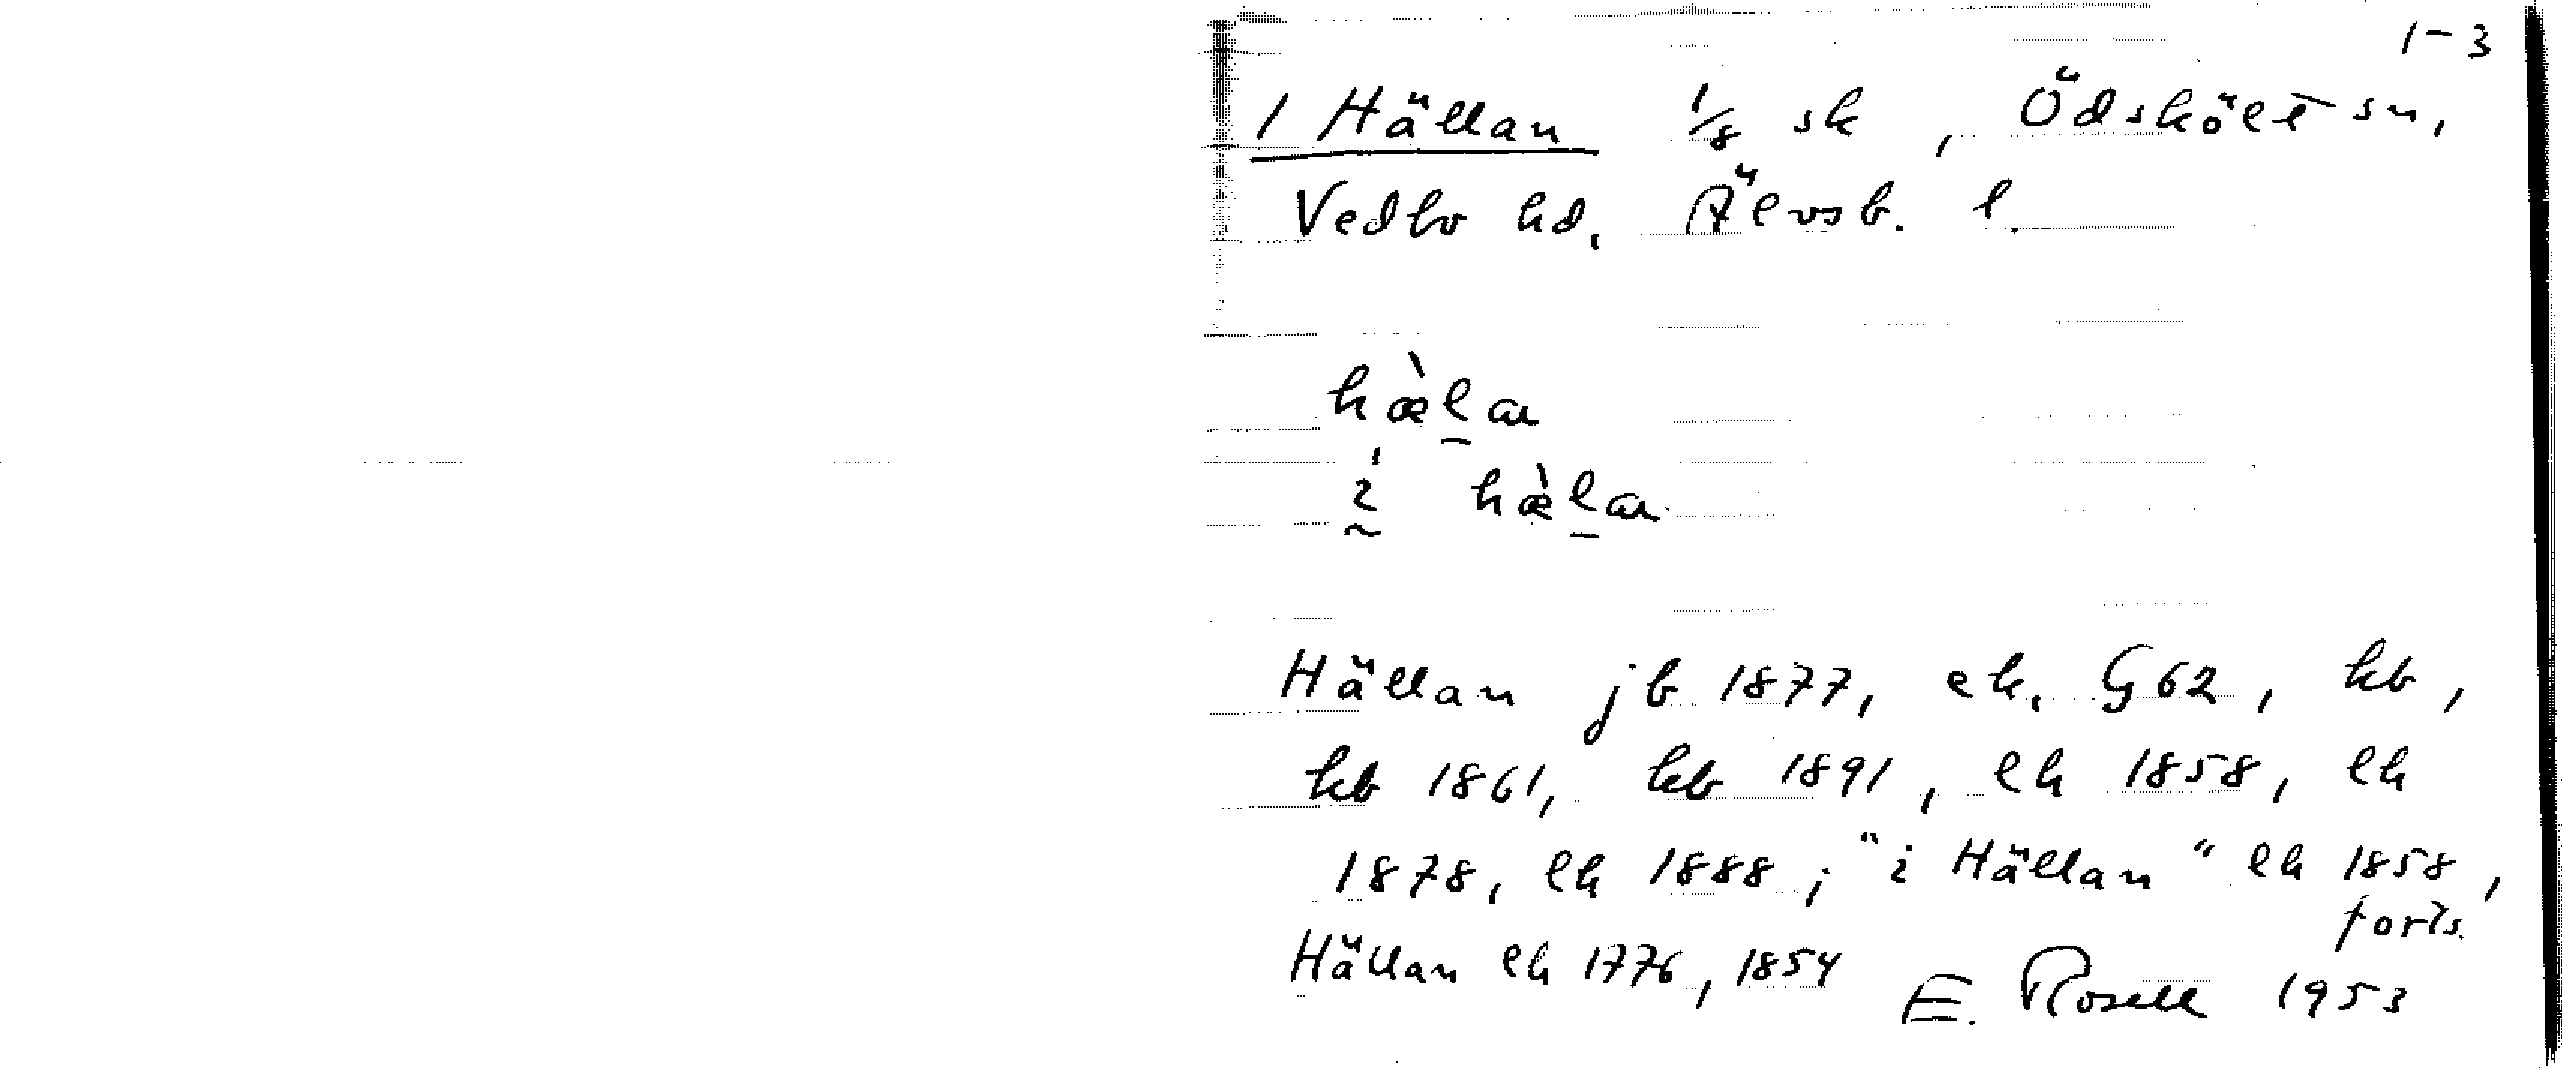 1-3
1 Hällan 1/8 sk, Ödskölt sn,
Vedbo hd. Älvsb. l.
hæ̀l̠an
ḭ́ hæ̀l̠an
Hällan jb 1877, ek. G62, kb,
kb 1861, kb 1891, lh 1858, lh
1878, lh 1888; "i Hällan" lh 1858,
forts.
Hällan lh 1776, 1854 E. Rosell 1953